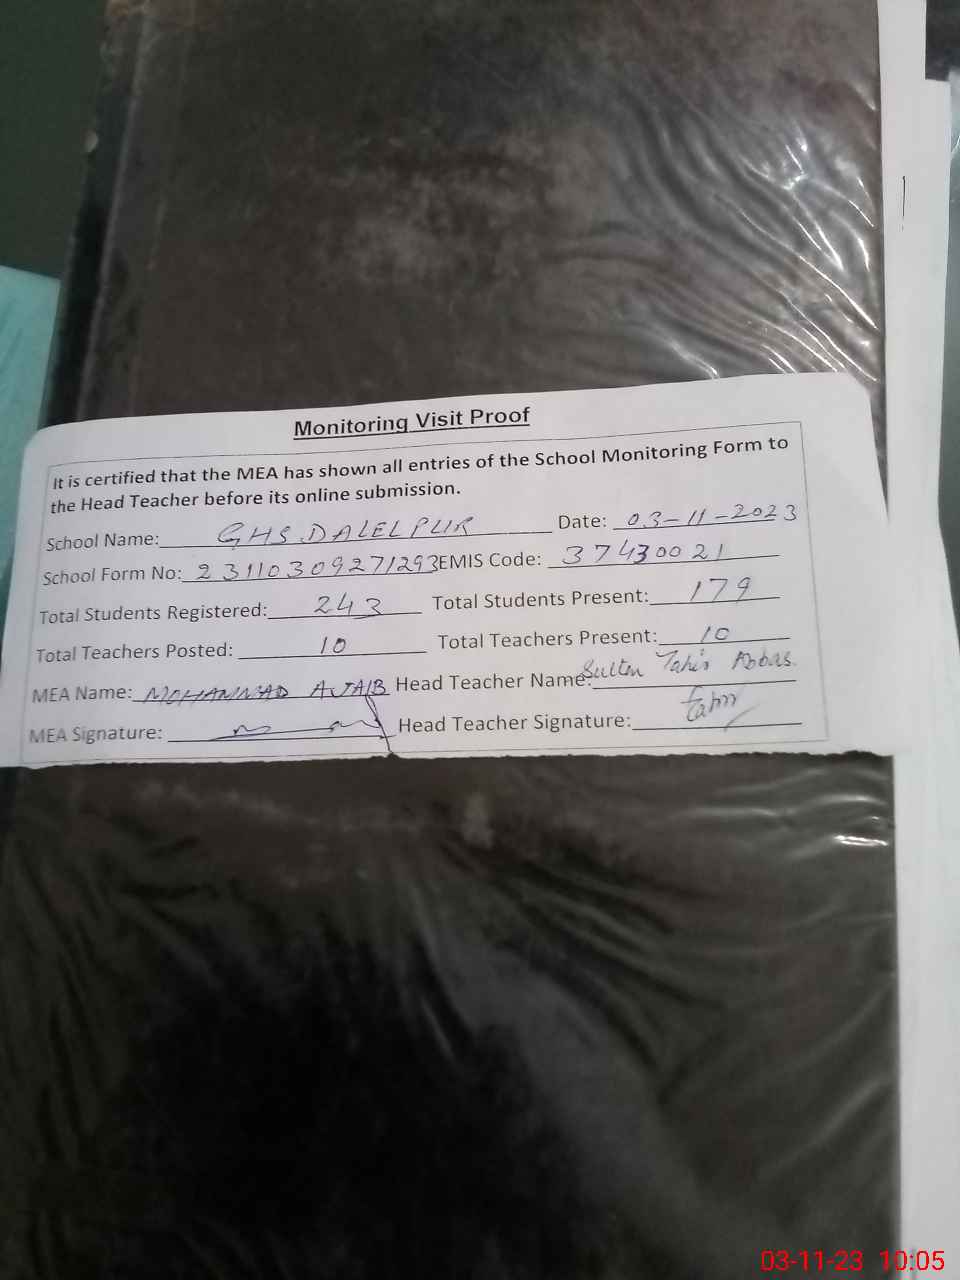 Monitoring Visit Proof
It is certified that the MEA has shown all entries of the School Monitoring Form to
the Head Teacher before its online submission.
School Name: GHS DALELPUR Date: 03-11-2023
School Form No: 23110309271293 EMIS Code: 37430021
Total Students Registered: 243 Total Students Present: 179
Total Teachers Posted: 10 Total Teachers Present: 10
MEA Name: MOHAMMAD AJTAIB Head Teacher Name: Sultan Tahir Abbas
MEA Signature: Head Teacher Signature: Tahir
03-11-23 10:05